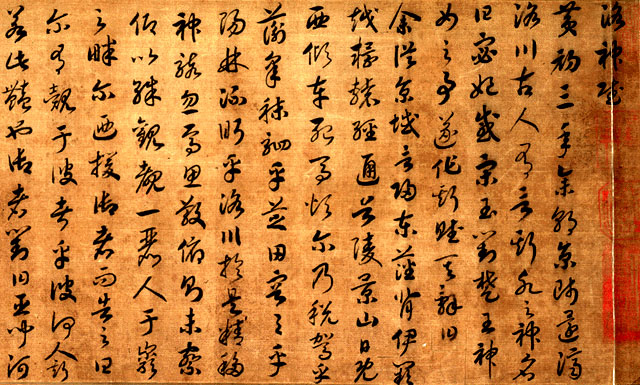 洛神賦
黄初三年余朝京師還濟
洛川古人有言斯水之神名
曰宓妃感宋玉對楚王神
女之事遂作斯賦其辭曰
余從京域言歸東藩背伊闕
越轘轅經通谷陵景山日既
西傾車殆馬煩爾乃税駕乎
蘅皋秣駟乎芝田容与乎
陽林流眄乎洛川於是精移
神駭忽焉思散俯則未察
仰以殊觀覩一麗人于巖
之畔尔廼援御者而告之曰
尔有覿于彼者乎彼何人斯
若此豔也御者對曰臣聞河